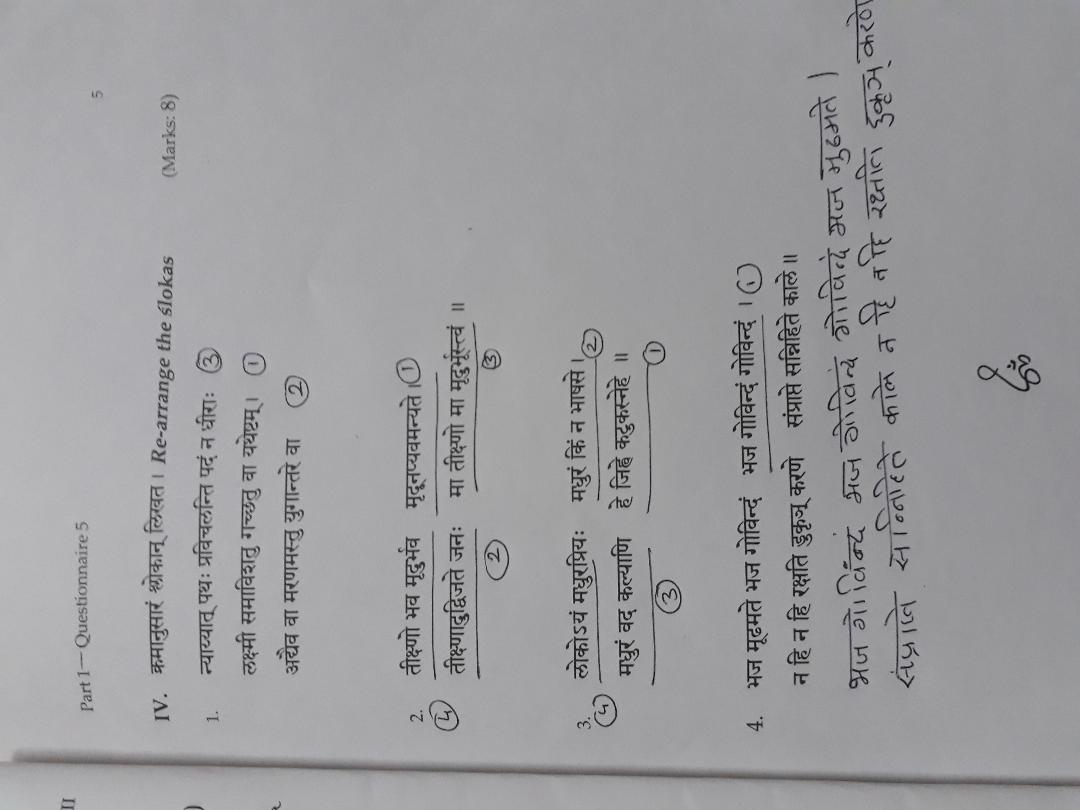 II
Part 1—Questionnaire 5
5
IV. क्रमानुसारं श्लोकान् लिखत। Re-arrange the ślokas (Marks: 8)
1. न्याय्यात् पथः प्रविचलन्ति पदं न धीराः 3
लक्ष्मी समाविशतु गच्छतु वा यथेष्टम्। 1
अद्यैव वा मरणमस्तु युगान्तरे वा 2
2. तीक्ष्णो भव मृदुर्भव मृदूनप्यवमन्यते। 1
4 तीक्ष्णादुद्विजते जनः मा तीक्ष्णो मा मृदुर्भूस्त्वं ॥
2 3
3. लोकोऽयं मधुरप्रियः मधुरं किं न भाषसे। 2
4
मधुरं वद कल्याणि हे जिह्वे कटुकस्नेहे ॥
3 1
4. भज मूढमते भज गोविन्दं भज गोविन्दं गोविन्दं । 1
न हि न हि रक्षति डुकृञ् करणे संप्राप्ते सन्निहिते काले॥
भज गोविंन्दं भज गोविन्दं गोविन्दं भज मुढमते।
संप्राप्ते सन्निहिते काले न हि न हि रक्षति डुकृञ् करणे
ॐ